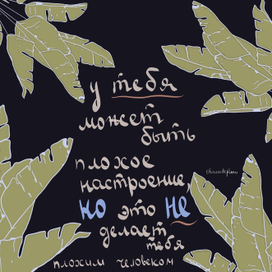 у тебя
может
быть
плохое
настроение,
но это не
делает
тебя
плохим человеком